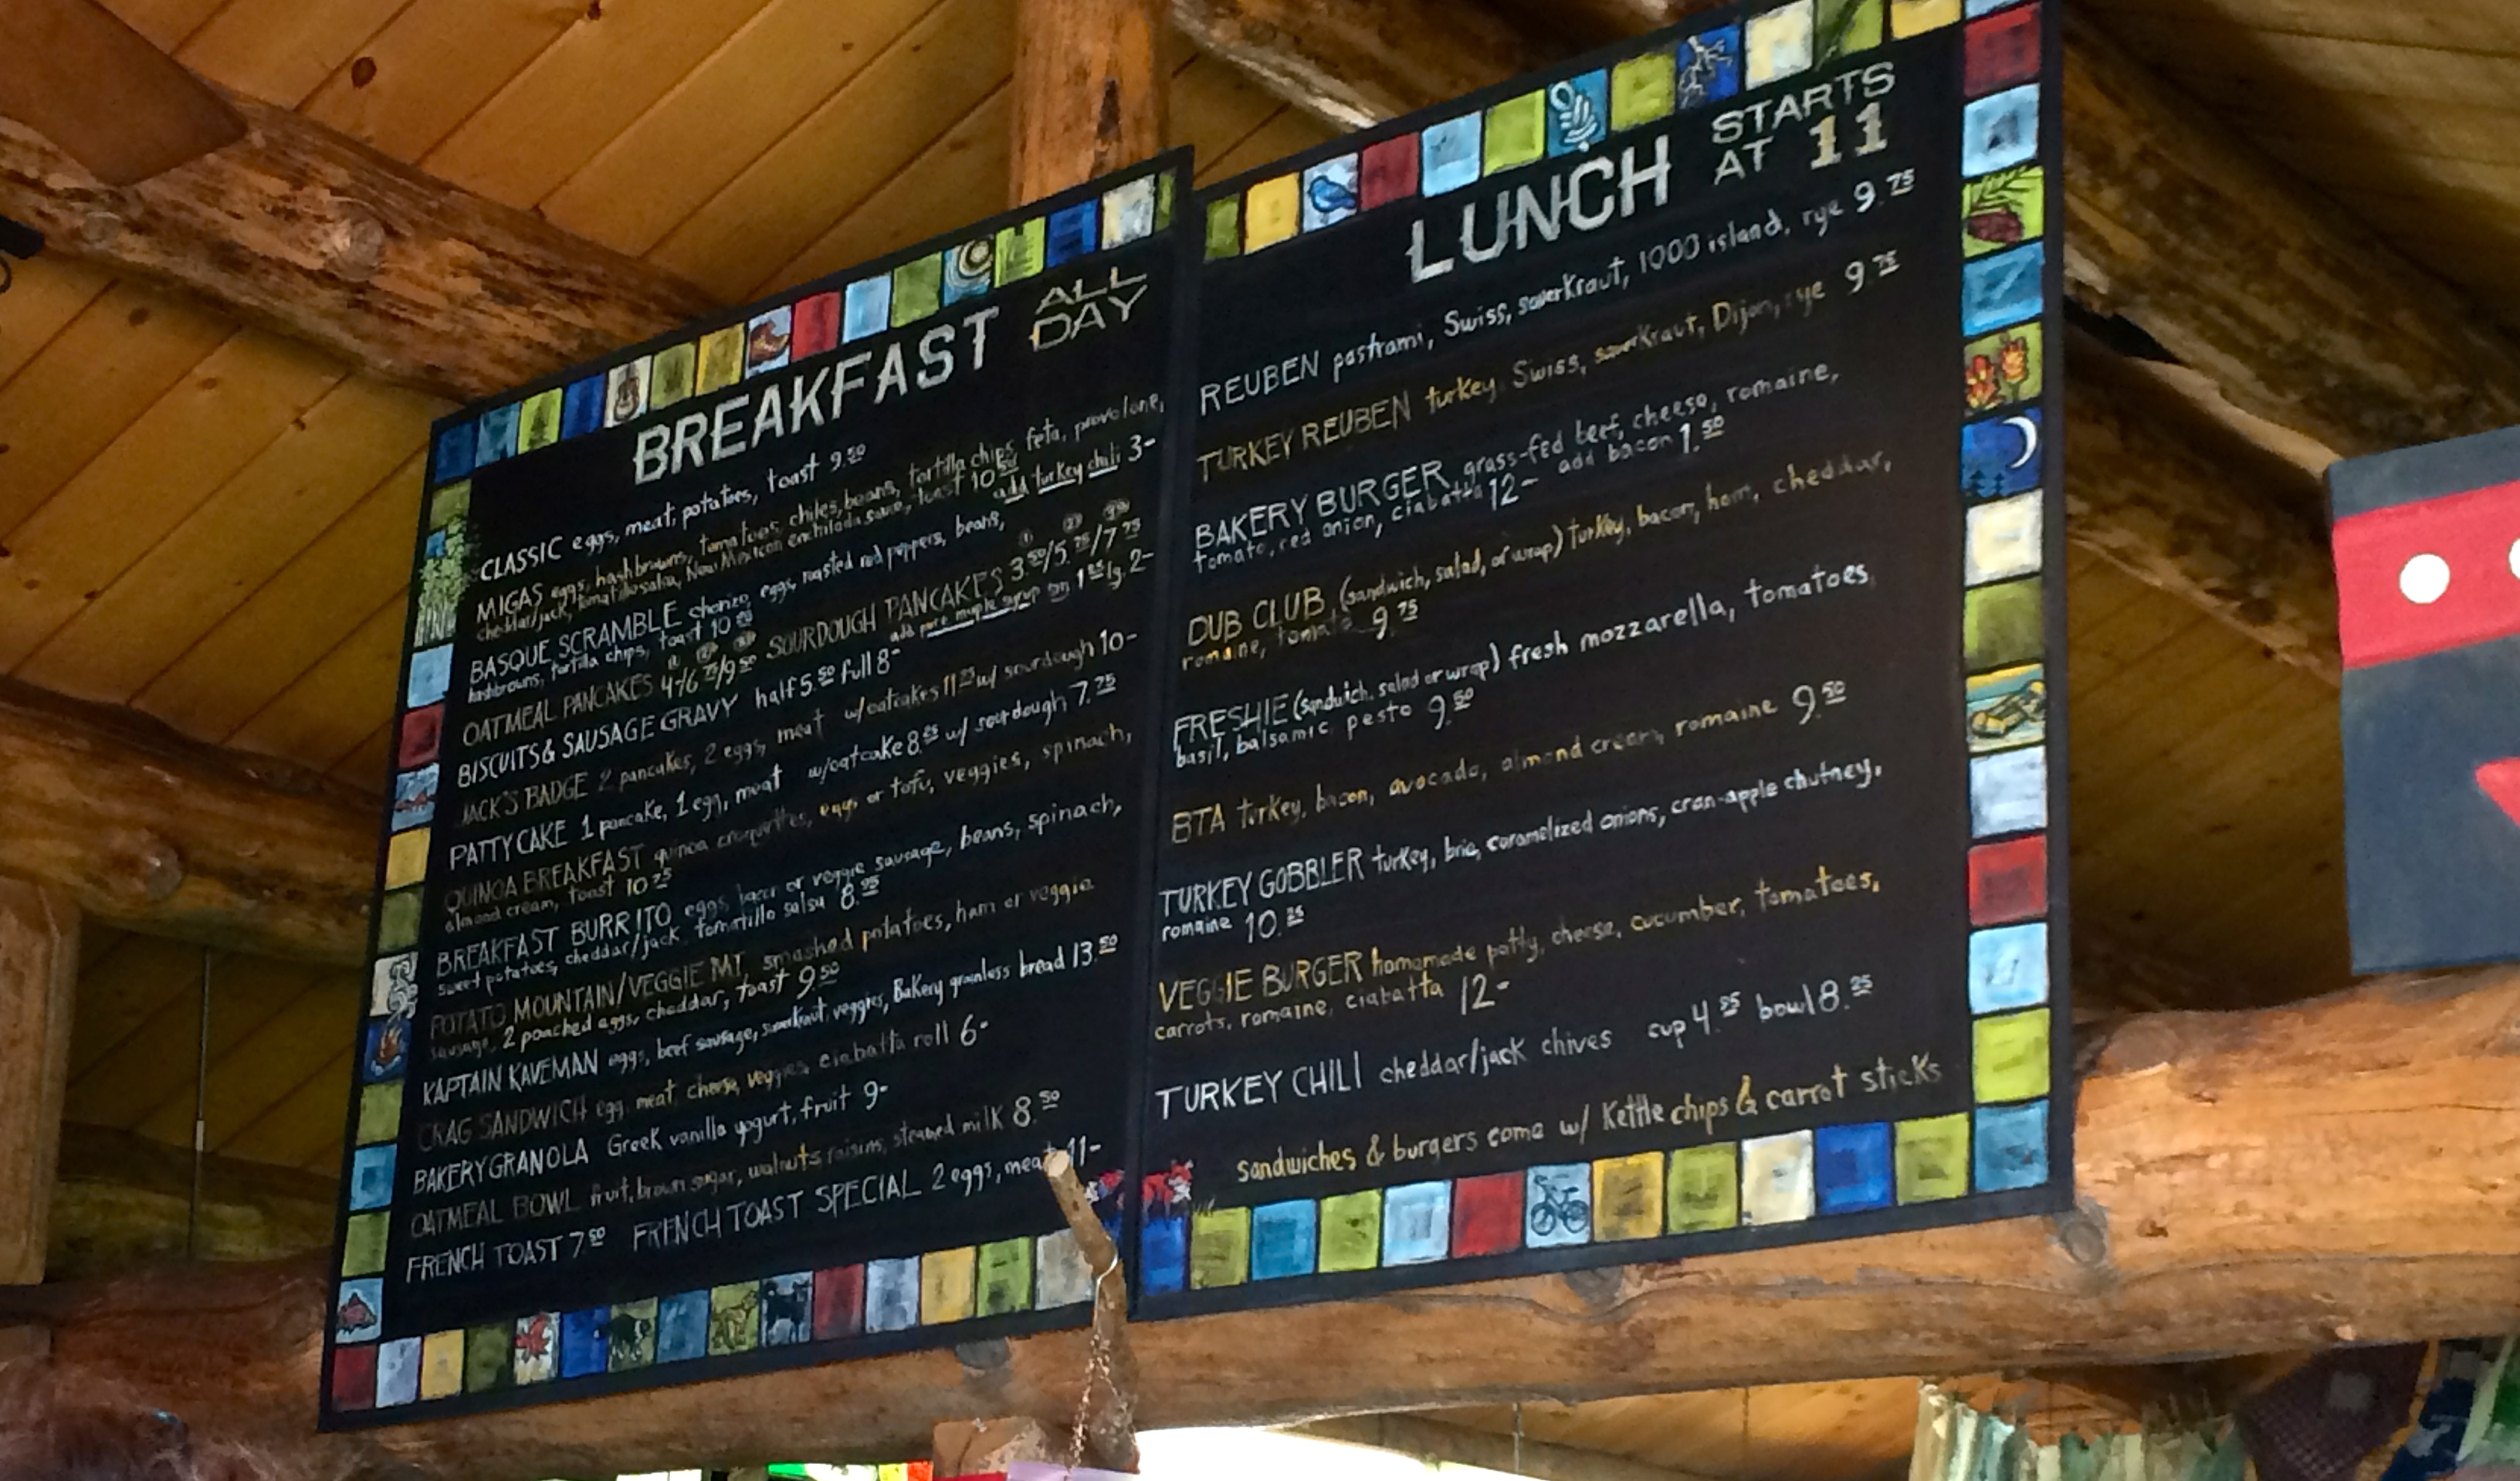 BREAKFAST ALL DAY
CLASSIC eggs, meat, potatoes, toast 9.50
MIGAS eggs, hashbrowns, tomatoes, chiles, beans, tortilla chips, feta, provolone,
cheddar/jack, tomatillo salsa, New Mexican enchilada sauce, toast 10.50
add turkey chili 3-
BASQUE SCRAMBLE chorizo, eggs, roasted red peppers, beans,
hashbrowns, tortilla chips, toast 10
OATMEAL PANCAKES 4-/6.75/9.50 SOURDOUGH PANCAKES 3.50/5.75/7.75
add pure maple syrup lg. 2-
BISCUITS & SAUSAGE GRAVY half 5.50 full 8-
JACK'S BADGE 2 pancakes, 2 eggs, meat w/oatcakes 11.25 w/ sourdough 10-
PATTY CAKE 1 pancake, 1 egg, meat w/oatcake 8.25 w/ sourdough 7.75
QUINOA BREAKFAST quinoa croquettes, eggs or tofu, veggies, spinach,
almond cream, toast 10.75
BREAKFAST BURRITO eggs, bacon or veggie sausage, beans, spinach,
sweet potatoes, cheddar/jack, tomatillo salsa 8.95
POTATO MOUNTAIN/VEGGIE MT. smashed potatoes, ham or veggie
sausage, 2 poached eggs, cheddar, toast 9.50
KAPTAIN KAVEMAN eggs, beef sausage, sauerkraut, veggies, Bakery grainless bread 13.50
CRAG SANDWICH egg, meat, cheese, veggies, ciabatta roll 6-
BAKERY GRANOLA Greek vanilla yogurt, fruit 9-
OATMEAL BOWL fruit, brown sugar, walnuts, raisins, steamed milk 8.50
FRENCH TOAST 7.50 FRENCH TOAST SPECIAL 2 eggs, meat 11-
LUNCH STARTS AT 11
REUBEN pastrami, Swiss, sauerkraut, 1000 island, rye 9.75
TURKEY REUBEN turkey, Swiss, sauerkraut, Dijon, rye 9.75
BAKERY BURGER grass-fed beef, cheese, romaine,
tomato, red onion, ciabatta 12- add bacon 1.50
DUB CLUB (sandwich, salad, or wrap) turkey, bacon, ham, cheddar,
romaine, tomato 9.75
FRESHIE (sandwich, salad or wrap) fresh mozzarella, tomatoes,
basil, balsamic, pesto 9.50
BTA turkey, bacon, avocado, almond cream, romaine 9.50
TURKEY GOBBLER turkey, brie, caramelized onions, cran-apple chutney,
romaine 10.25
VEGGIE BURGER homemade patty, cheese, cucumber, tomatoes,
carrots, romaine, ciabatta 12-
TURKEY CHILI cheddar/jack chives cup 4.95 bowl 8.25
sandwiches & burgers come w/ Kettle chips & carrot sticks